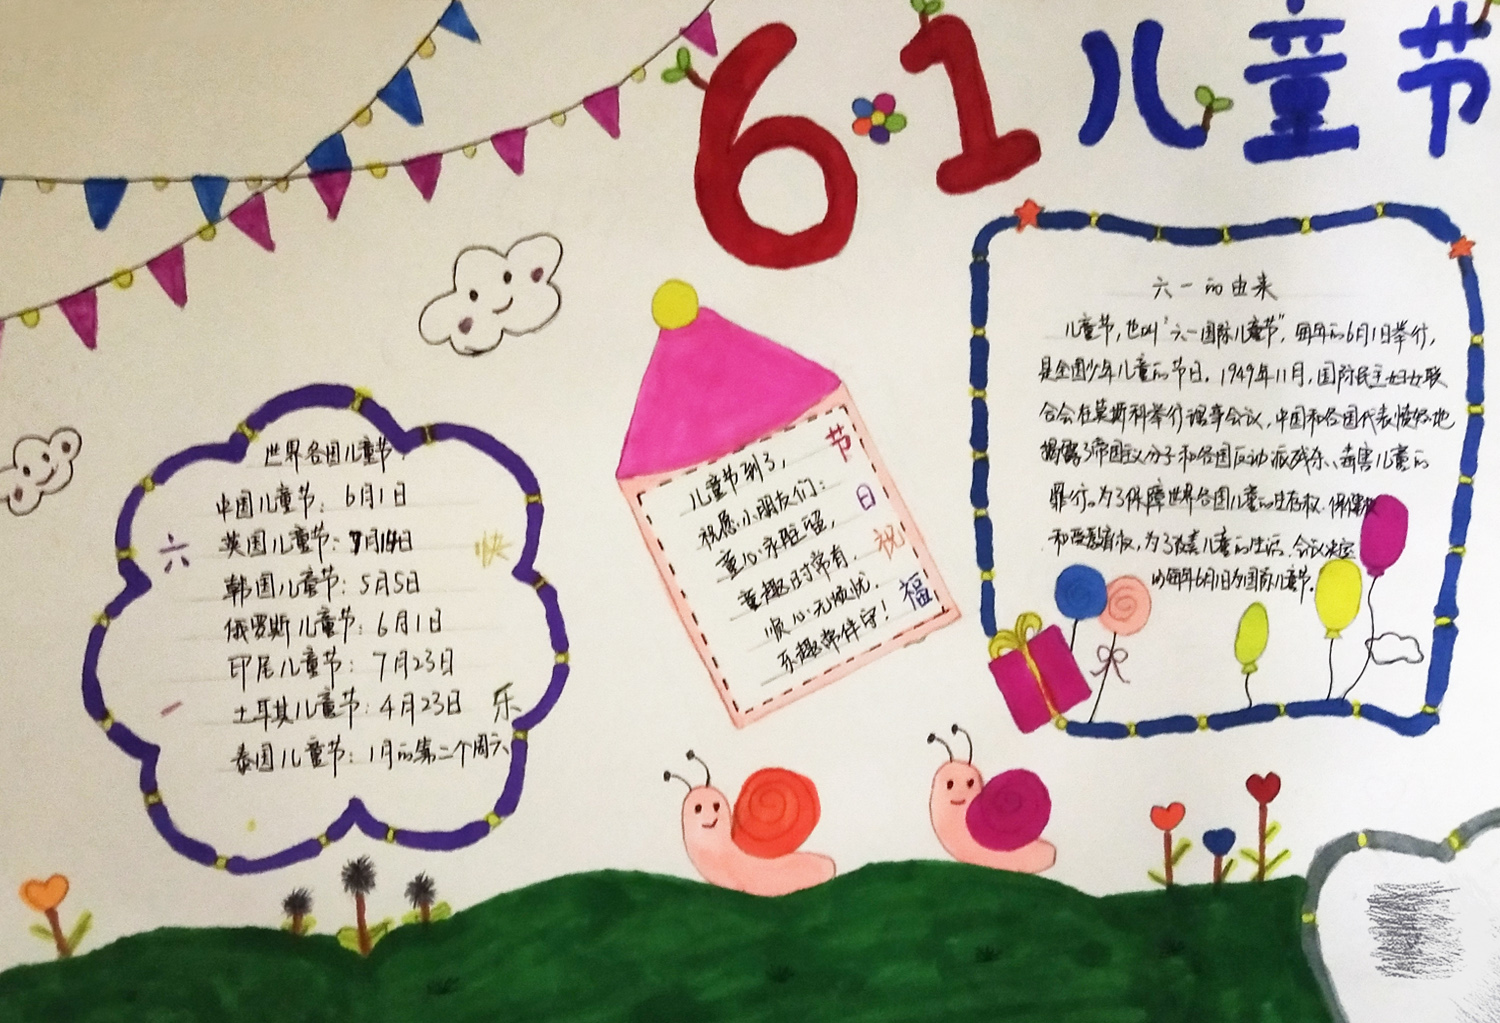 6·1儿童节
世界各国儿童节
中国儿童节：6月1日
英国儿童节：7月14日
韩国儿童节：5月5日
俄罗斯儿童节：6月1日
印尼儿童节：7月23日
土耳其儿童节：4月23日
泰国儿童节：1月的第二个周六
六一
快乐
儿童节到了，
祝愿小朋友们：
童心永驻留，
童趣时常有，
顺心无烦忧，
乐趣常伴守！
节日祝福
六一的由来
儿童节，也叫“六一国际儿童节”，每年的6月1日举行，
是全国少年儿童的节日。1949年11月，国际民主妇女联
合会在莫斯科举行理事会议，中国和各国代表愤怒地
揭露了帝国主义分子和各国反动派残杀、毒害儿童的
罪行。为了保障世界各国儿童的生存权、保健权
和受教育权，为了改善儿童的生活，会议决定
的每年6月1日为国际儿童节。